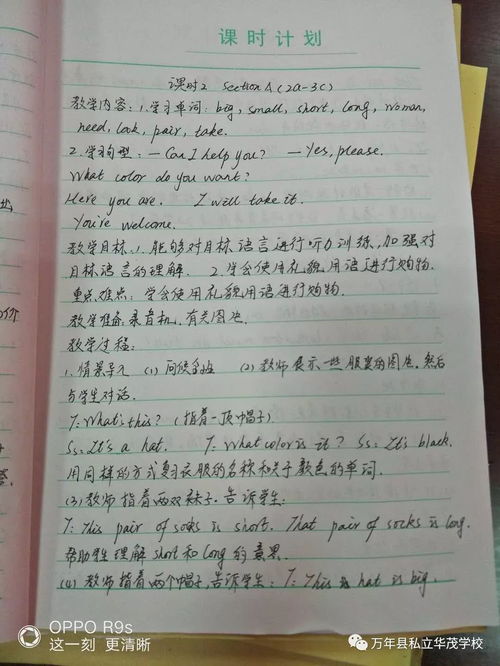 课时计划
课时2 Section A (2a-3c)
教学内容:1.学习单词:big, small, short, long, woman,
need, look, pair, take.
2.学习句型:—Can I help you? —Yes, please.
What color do you want?
Here you are. I will take it.
You're welcome.
教学目标:1.能够对目标语言进行听力训练,加强对
目标语言的理解. 2.学会使用礼貌用语进行购物.
重点、难点:学会使用礼貌用语进行购物.
教学准备:录音机,有关图片.
教学过程:
1.情景导入 (1)问候学生 (2)教师展示一些服装的图片.然后
与学生对话.
T:What's this?(指着一顶帽子)
Ss:It's a hat. T:What color is it? Ss:It's black.
用同样的方式复习衣服的名称和关于颜色的单词.
(3)教师指着两双袜子.告诉学生:
T:This pair of socks is short. That pair of socks is long.
帮助学生理解short和long的意思.
(4)教师指着两个帽子,告诉学生:T:This hat is big.
OPPO R9s
这一刻 更清晰
万年县私立华茂学校